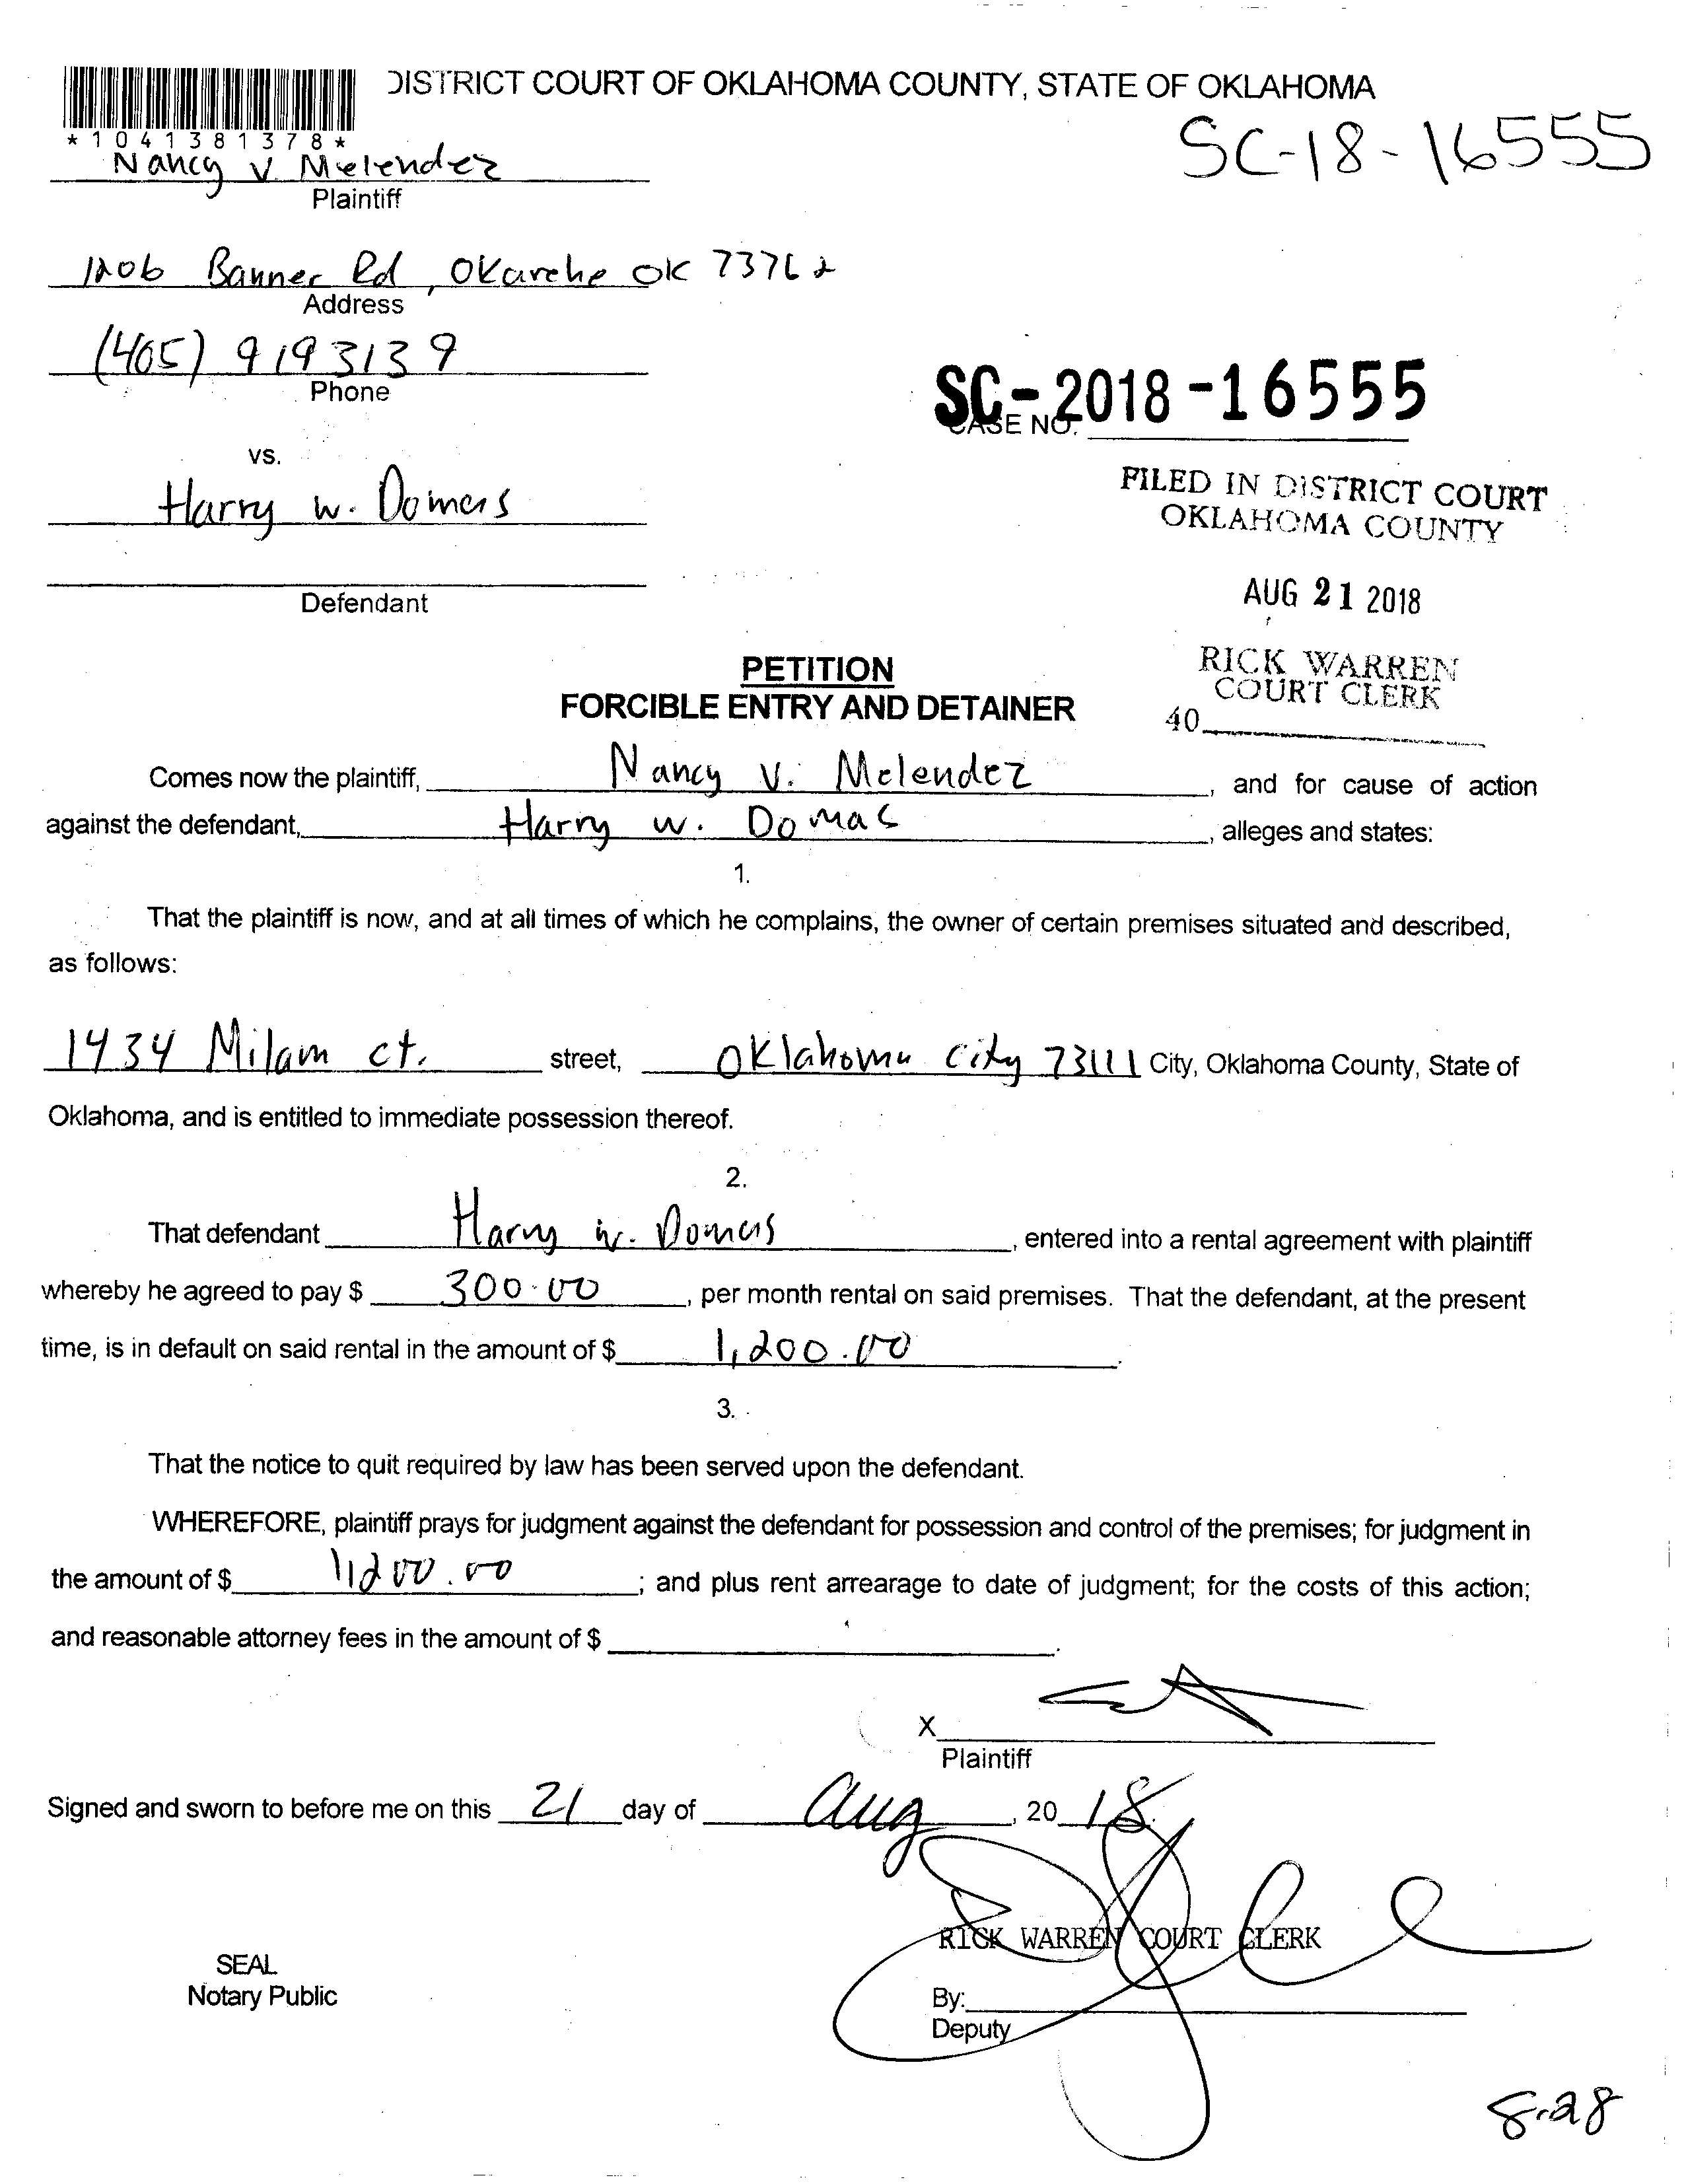 DISTRICT COURT OF OKLAHOMA COUNTY, STATE OF OKLAHOMA
*1041381378*
SC-18-16555
Nancy V. Melendez
Plaintiff
1206 Banner Rd, Okarche OK 73762
Address
(405) 9193139
Phone
SC-2018-16555
CASE NO.
vs.
FILED IN DISTRICT COURT
OKLAHOMA COUNTY
Harry W. Domas
Defendant
AUG 21 2018
RICK WARREN
COURT CLERK
40
PETITION
FORCIBLE ENTRY AND DETAINER
Comes now the plaintiff, Nancy V. Melendez, and for cause of action
against the defendant, Harry W. Domas, alleges and states:
1.
That the plaintiff is now, and at all times of which he complains, the owner of certain premises situated and described,
as follows:
1434 Milam ct. street, Oklahoma city 73111 City, Oklahoma County, State of
Oklahoma, and is entitled to immediate possession thereof.
2.
That defendant Harry W. Domas, entered into a rental agreement with plaintiff
whereby he agreed to pay $ 300.00, per month rental on said premises. That the defendant, at the present
time, is in default on said rental in the amount of $ 1,200.00.
3.
That the notice to quit required by law has been served upon the defendant.
WHEREFORE, plaintiff prays for judgment against the defendant for possession and control of the premises; for judgment in
the amount of $ 1,200.00; and plus rent arrearage to date of judgment; for the costs of this action;
and reasonable attorney fees in the amount of $ .
X
Plaintiff
Signed and sworn to before me on this 21 day of Aug, 20 18.
RICK WARREN COURT CLERK
SEAL
Notary Public
By:
Deputy
8-28